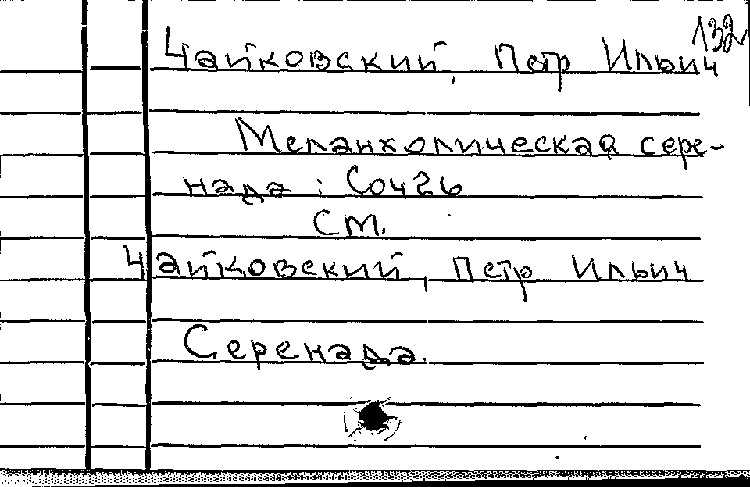 132
Чайковский, Петр Ильич
Меланхолическая сере-
нада : Соч26
См.
Чайковский, Петр Ильич
Серенада.